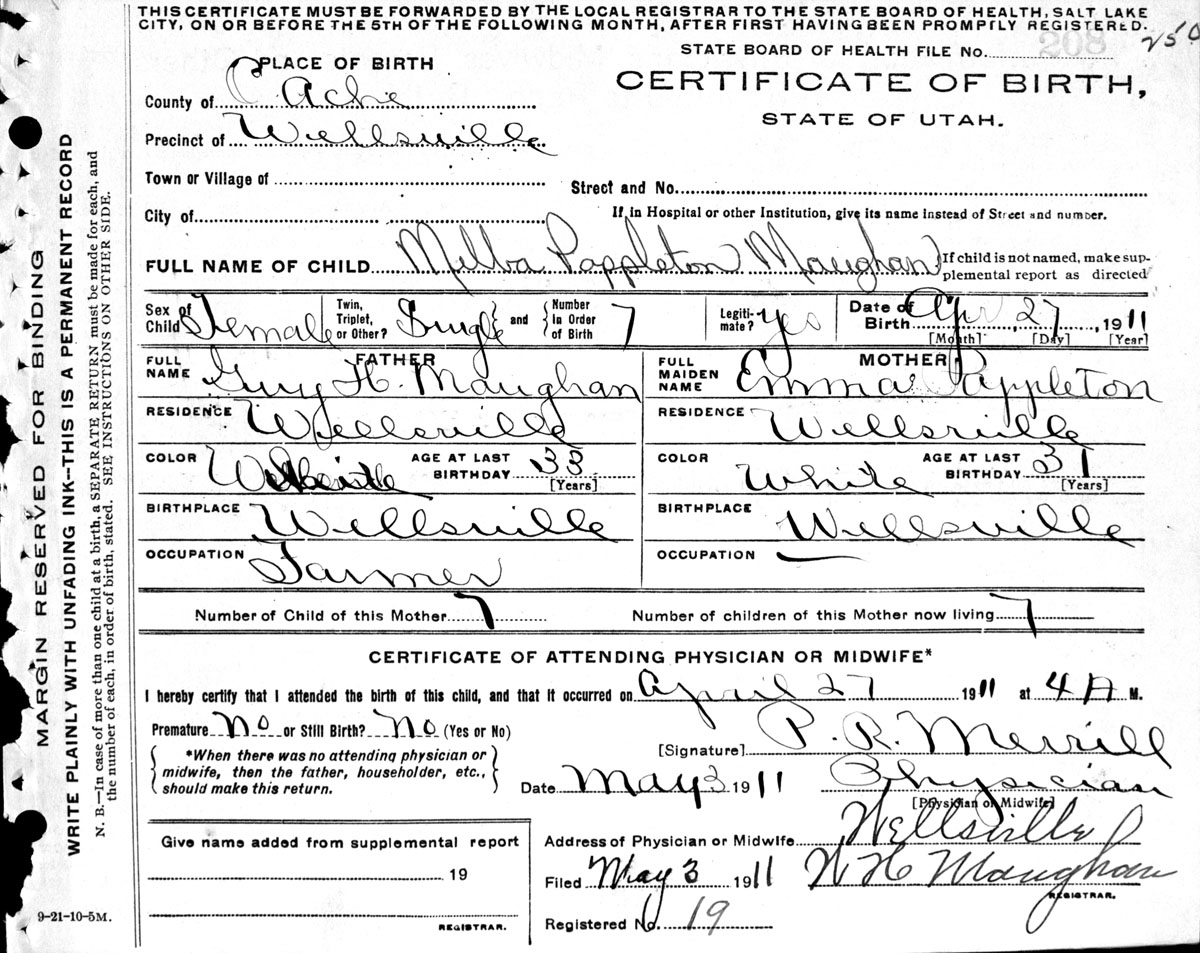 THIS CERTIFICATE MUST BE FORWARDED BY THE LOCAL REGISTRAR TO THE STATE BOARD OF HEALTH, SALT LAKE
CITY, ON OR BEFORE THE 5TH OF THE FOLLOWING MONTH, AFTER FIRST HAVING BEEN PROMPTLY REGISTERED.
STATE BOARD OF HEALTH FILE No. 208
250
PLACE OF BIRTH
CERTIFICATE OF BIRTH,
STATE OF UTAH.
County of Cache
Precinct of Wellsville
Town or Village of
Street and No.
City of
If in Hospital or other Institution, give its name instead of Street and number.
FULL NAME OF CHILD Melba Pappleton Maughan {If child is not named, make sup-
plemental report as directed
Sex of Child Female Twin, Triplet, or Other? Single and {Number In Order of Birth} 7 Legiti-mate? yes Date of Birth Apr, 27, 1911
[Month] [Day] [Year]
FATHER MOTHER
FULL NAME Guy H. Maughan FULL MAIDEN NAME Emma Pappleton
RESIDENCE Wellsville RESIDENCE Wellsville
COLOR White AGE AT LAST BIRTHDAY 33 [Years] COLOR White AGE AT LAST BIRTHDAY 31 [Years]
BIRTHPLACE Wellsville BIRTHPLACE Wellsville
OCCUPATION Farmer OCCUPATION —
Number of Child of this Mother 7 Number of children of this Mother now living 7
CERTIFICATE OF ATTENDING PHYSICIAN OR MIDWIFE*
I hereby certify that I attended the birth of this child, and that it occurred on April 27 1911 at 4 A M.
Premature No or Still Birth? No (Yes or No)
*When there was no attending physician or
midwife, then the father, householder, etc.,
should make this return.
[Signature] P. R. Merrill
Date May 3 1911 Physician
[Physician or Midwife]
Give name added from supplemental report
19
REGISTRAR.
Address of Physician or Midwife Wellsville
Filed May 3 1911 W H Maughan
REGISTRAR.
Registered No. 19
9-21-10-5M.
MARGIN RESERVED FOR BINDING
WRITE PLAINLY WITH UNFADING INK—THIS IS A PERMANENT RECORD
N. B.—In case of more than one child at a birth, a SEPARATE RETURN must be made for each, and
the number of each, in order of birth, stated. SEE INSTRUCTIONS ON OTHER SIDE.